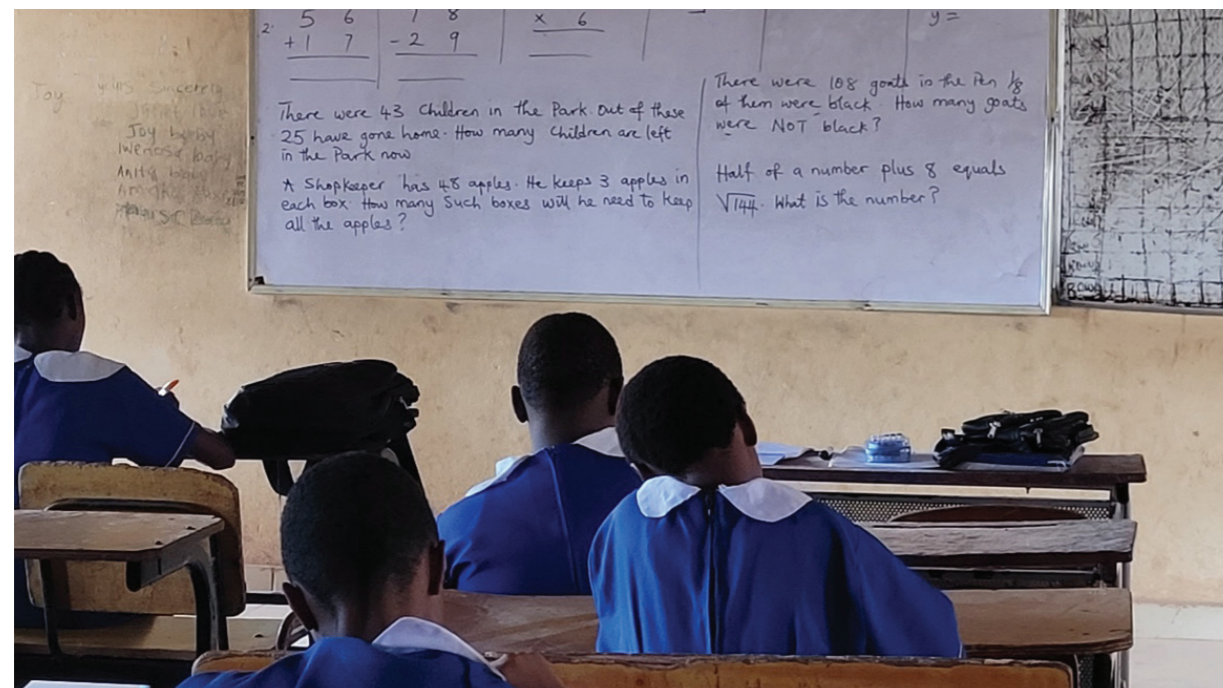 2. 5 6
+ 1 7
7 8
- 2 9
x 6
y =
There were 43 Children in the Park. Out of these
25 have gone home. How many Children are left
in the Park now
A Shopkeeper has 48 apples. He keeps 3 apples in
each box. How many Such boxes will he need to keep
all the apples?
There were 108 goats in the Pen 1/8
of them were black. How many goats
were NOT black?
Half of a number plus 8 equals
√144. What is the number?
Joy
Sincerely
Joy